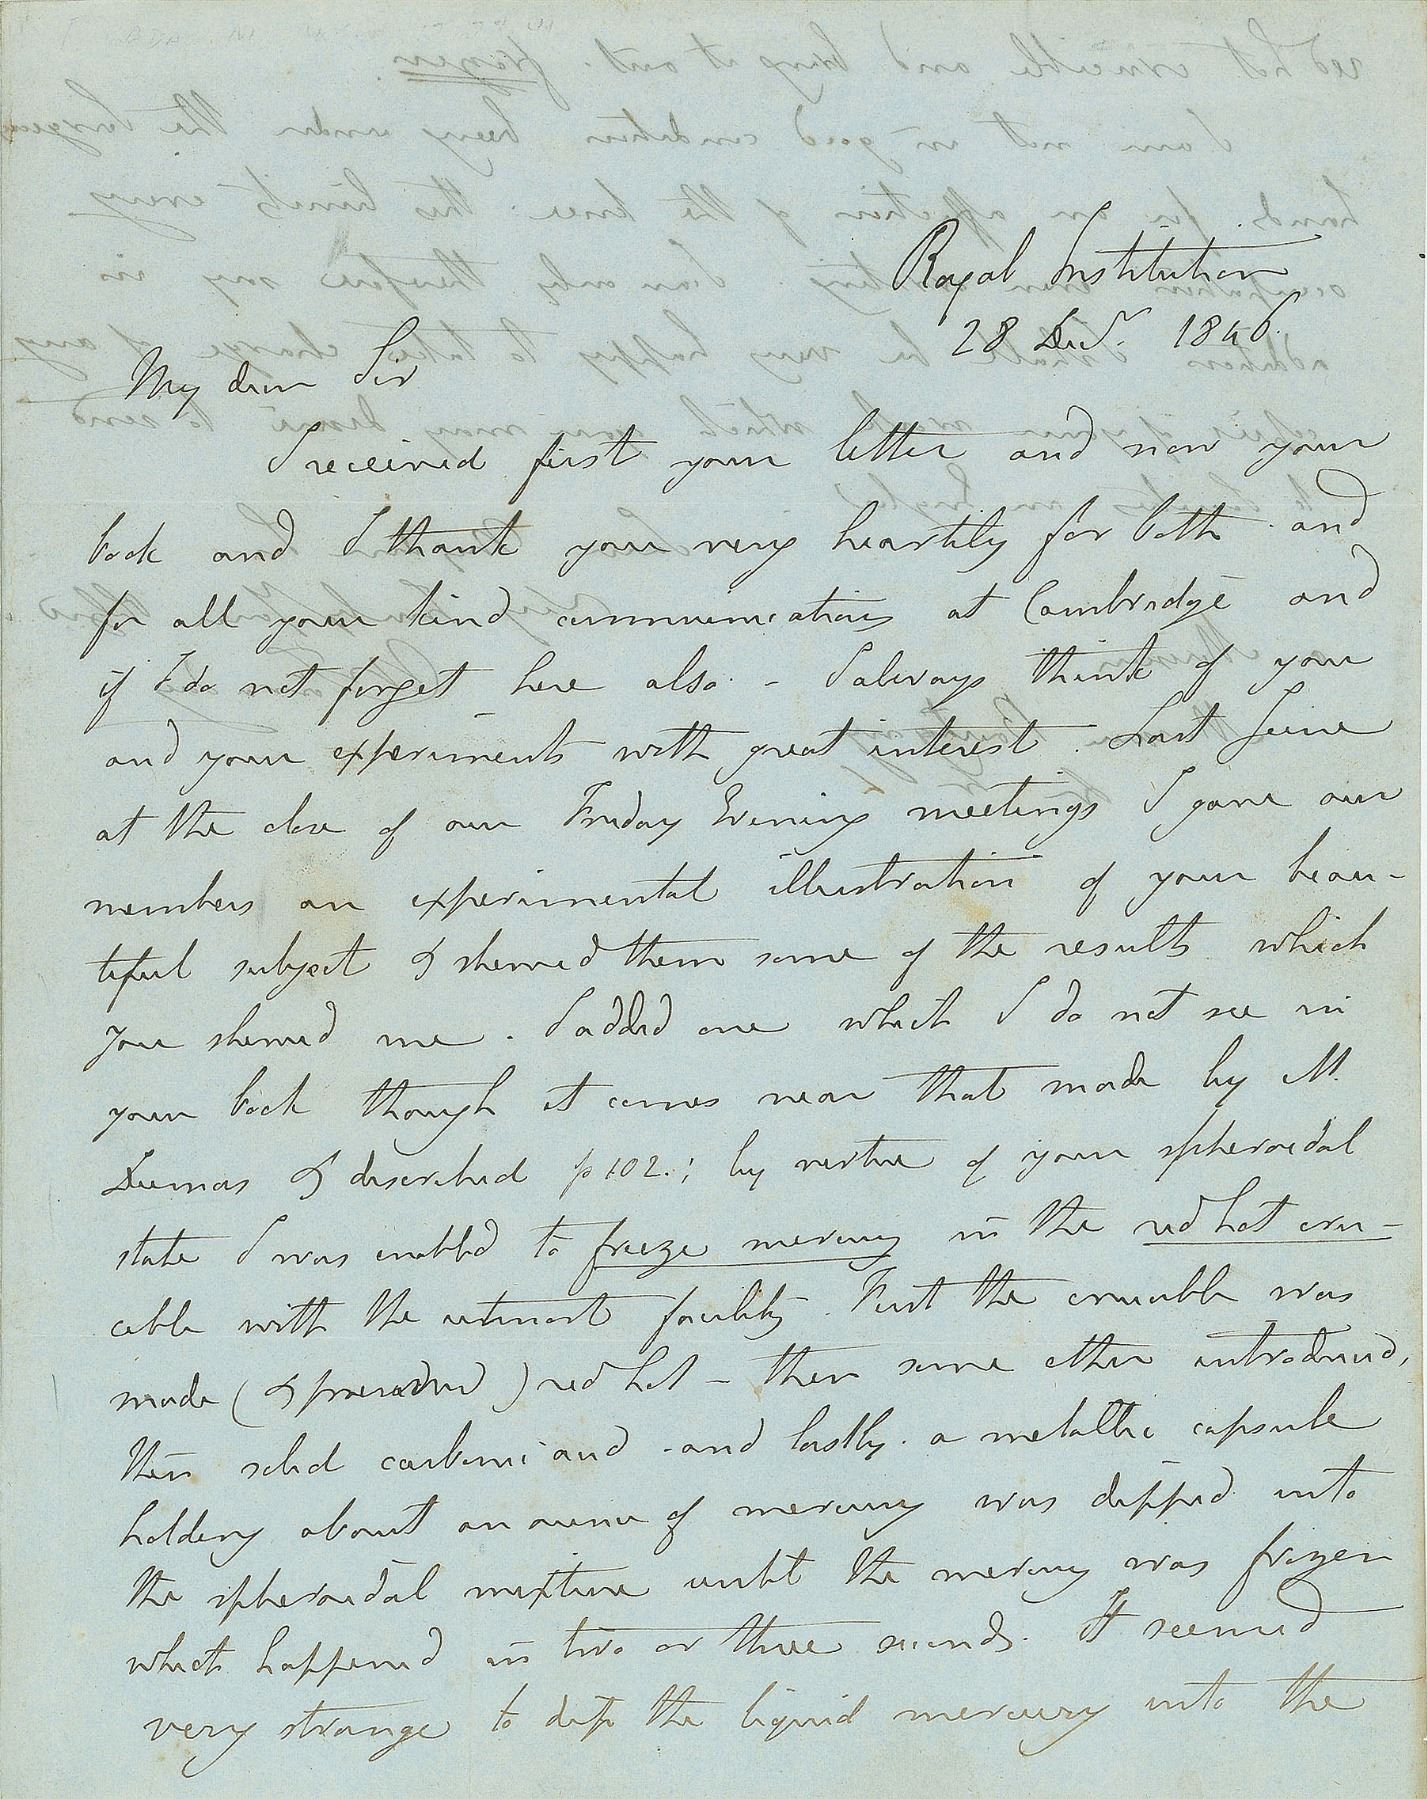 Royal Institution
28 Decr. 1846.
My dear Sir
I received first your letter and now your
book and I thank you very heartily for both and
for all your kind communications at Cambridge and
if I do not forget here also - I always think of you
and your experiments with great interest. Last June
at the close of our Friday Evening meetings I gave our
members an experimental illustration of your beau-
tiful subject & shewed them some of the results which
you shewed me. I added one which I do not see in
your book though it comes near that made by M.
Dumas & described p 102.; by virtue of your spheroidal
state I was enabled to freeze mercury in the red hot cru-
cible with the utmost facility. First the crucible was
made (& preserved) red hot - then some ether introduced,
then solid carbonic acid - and lastly a metallic capsule
holding about an ounce of mercury was dipped into
the spheroidal mixture until the mercury was frozen
which happened in two or three seconds. It seemed
very strange to dip the liquid mercury into the